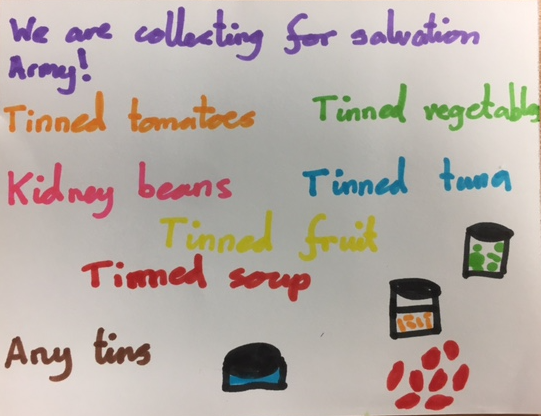 We are collecting for salvation
Army!
Tinned tomatoes
Tinned vegetables
Kidney beans
Tinned tuna
Tinned fruit
Tinned soup
Any tins